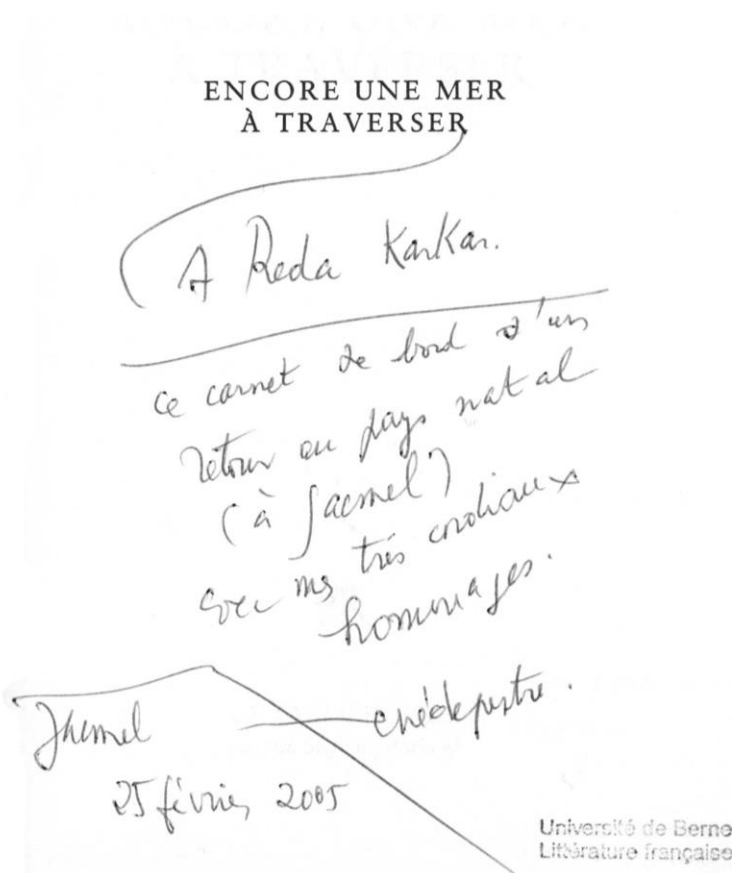 ENCORE UNE MER
À TRAVERSER
A Reda Karkar.
ce carnet de bord d'un
retour au pays natal
(à Jacmel)
avec mes très cordiaux
hommages.
Jacmel
25 février 2005
Université de Berne
Littérature française